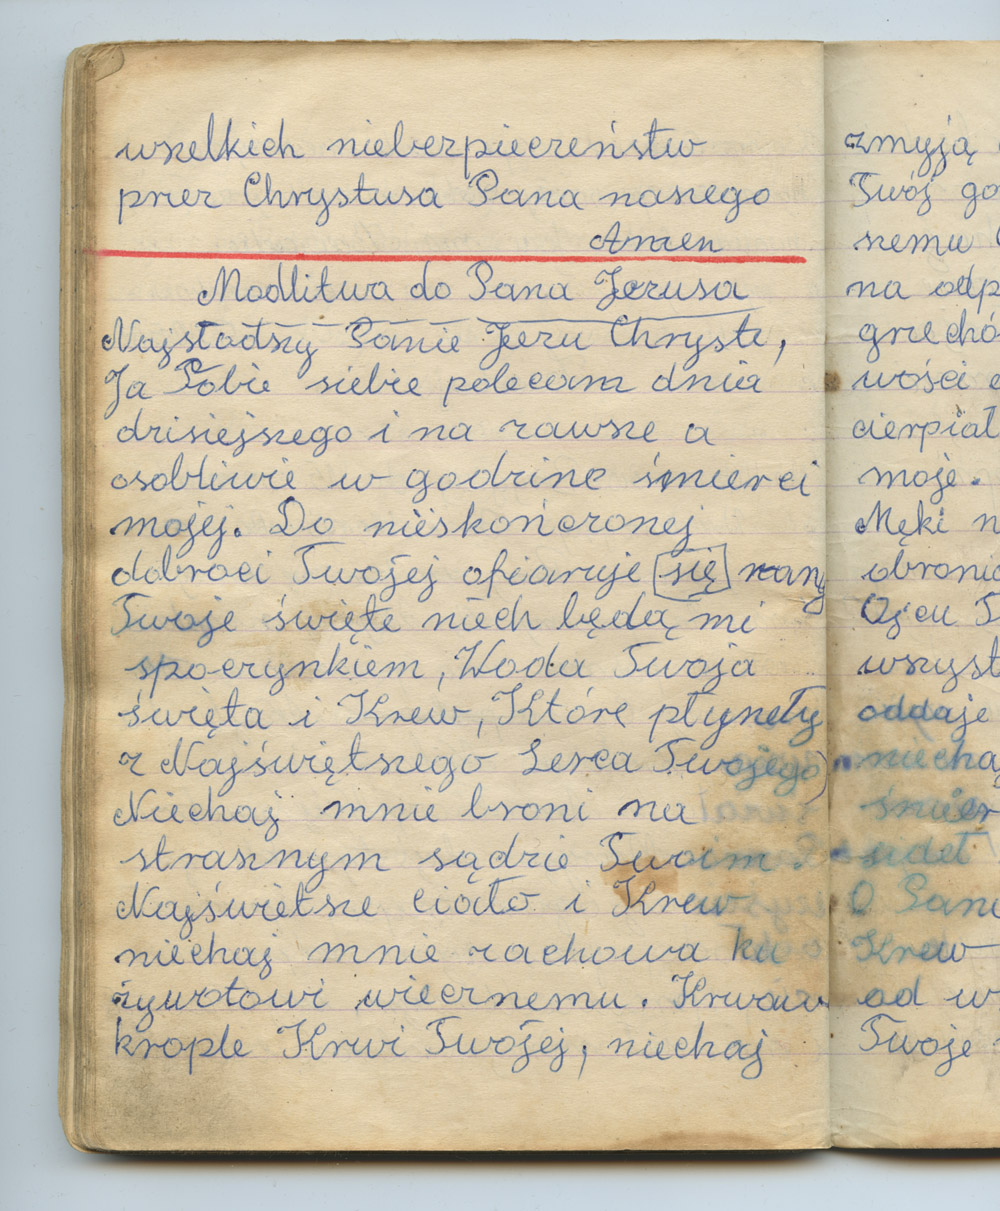 wszelkich nieberpieczeństw
przez Chrystusa Pana naszego
Amen
Modlitwa do Pana Jezusa
Najsłodszy Panie Jezu Chryste,
Ja Tobie siebie polecam dnia
dzisiejszego i na zawsze a
osobliwie w godzinę śmierci
mojej. Do nieskończonej
dobroci Twojej ofiaruje [się] rany
Twoje święte niech będą mi
spoczynkiem, Woda Twoja
święta i Krew, Które płynęły
z Najświętszego Serca Twojego)
Niechaj mnie broni na
strasznym sądzie Twoim.
Najświętsze ciało i Krew
niechaj mnie zachowa ku
żywotowi wiecznemu. Krwaw
krople Krwi Twojej, niechaj
zmyją
Twój go
szemu
na odp
grzechó
wości
cierpiał
moje.
Męki n
obronić
Ojcu T
wszyst
oddaje
niecha
śmier
udet
O Pani
Krew
od w
Twoje